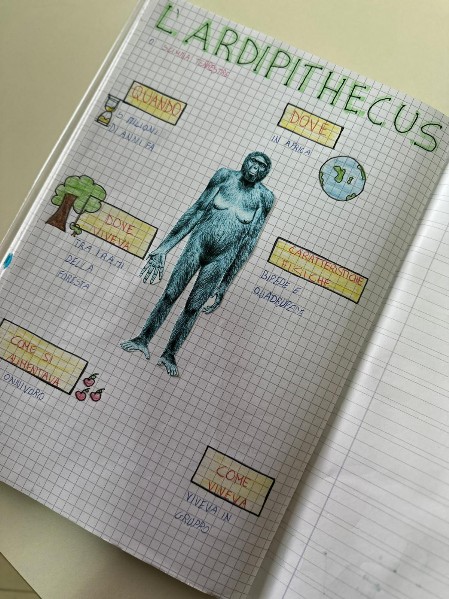 L'ARDIPITHECUS
O SCIMMIA
QUANDO
5 MILIONI
DI ANNI FA
DOVE
IN AFRICA
DOVE
VIVEVA
TRA I RAMI
DELLA
FORESTA
CARATTERISTICHE
FISICHE
BIPEDE E
QUADRUPEDE
COME SI
ALIMENTAVA
ONNIVORO
COME
VIVEVA
VIVEVA IN
GRUPPO